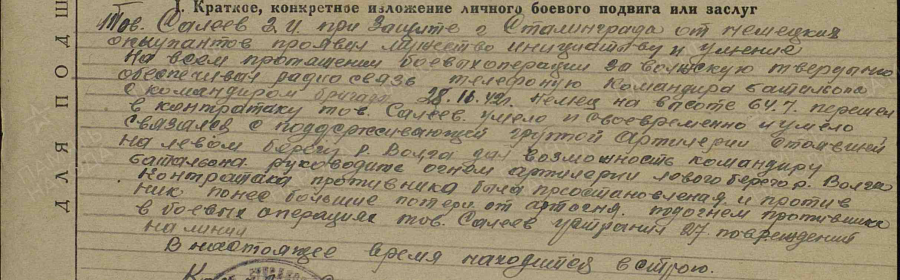 I. Краткое, конкретное изложение личного боевого подвига или заслуг
Тов. Салеев З.И. при защите г Сталинграда от немецких
окупантов проявил мужество инициативу и умение
На всем протяжении боевых операции за волжскую твердыню
обеспечивая радиосвязь командира батальона
с командиром бригады. 28.10.42г. немец на высоте 64.7. перешел
в контратаку тов. Салеев. умело и своевременно и умело
связался с поддерживающей группой артилерии стоявшей
на левом берегу р. Волга дал возможность командиру
батальона руководить огнем артилерии левого берега р. Волга
Контратака противника была приостановлена и против
ник понес большие потери от артогня. под огнем противника
в боевых операциях тов. Салеев устранил 27 повреждений
на линии
В настоящее время находится в строю.
ДЛЯ ПОД Ш